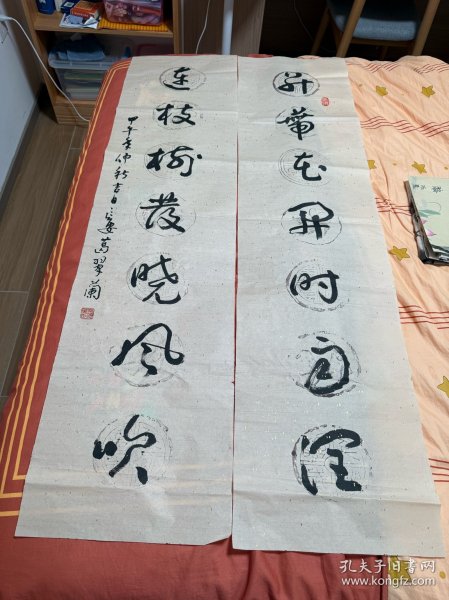 并蒂花开时雨润
连枝树發晓风吹
甲午年仲秋吉日葛翠蘭
孔夫子旧书网
www.kongfz.com